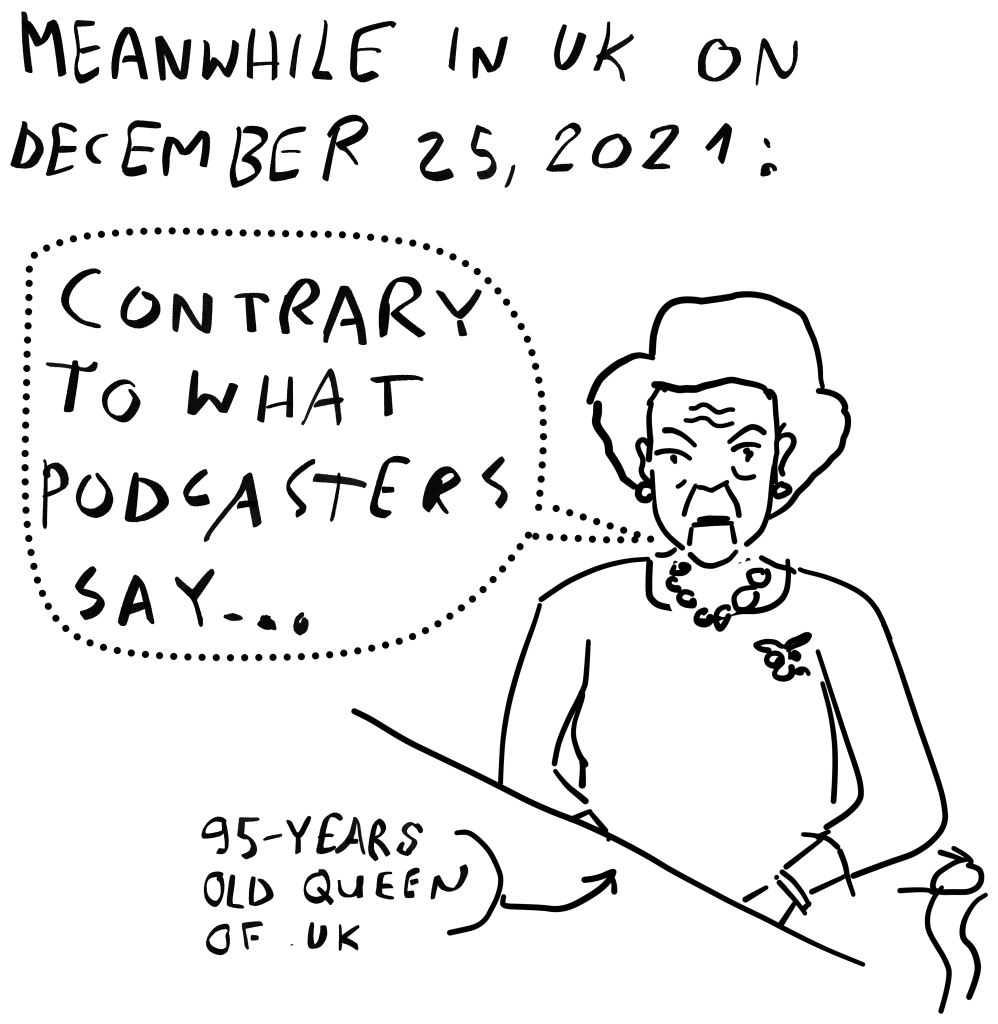 MEANWHILE IN UK ON
DECEMBER 25, 2021:
CONTRARY
TO WHAT
PODCASTERS
SAY...
95-YEARS
OLD QUEEN
OF UK